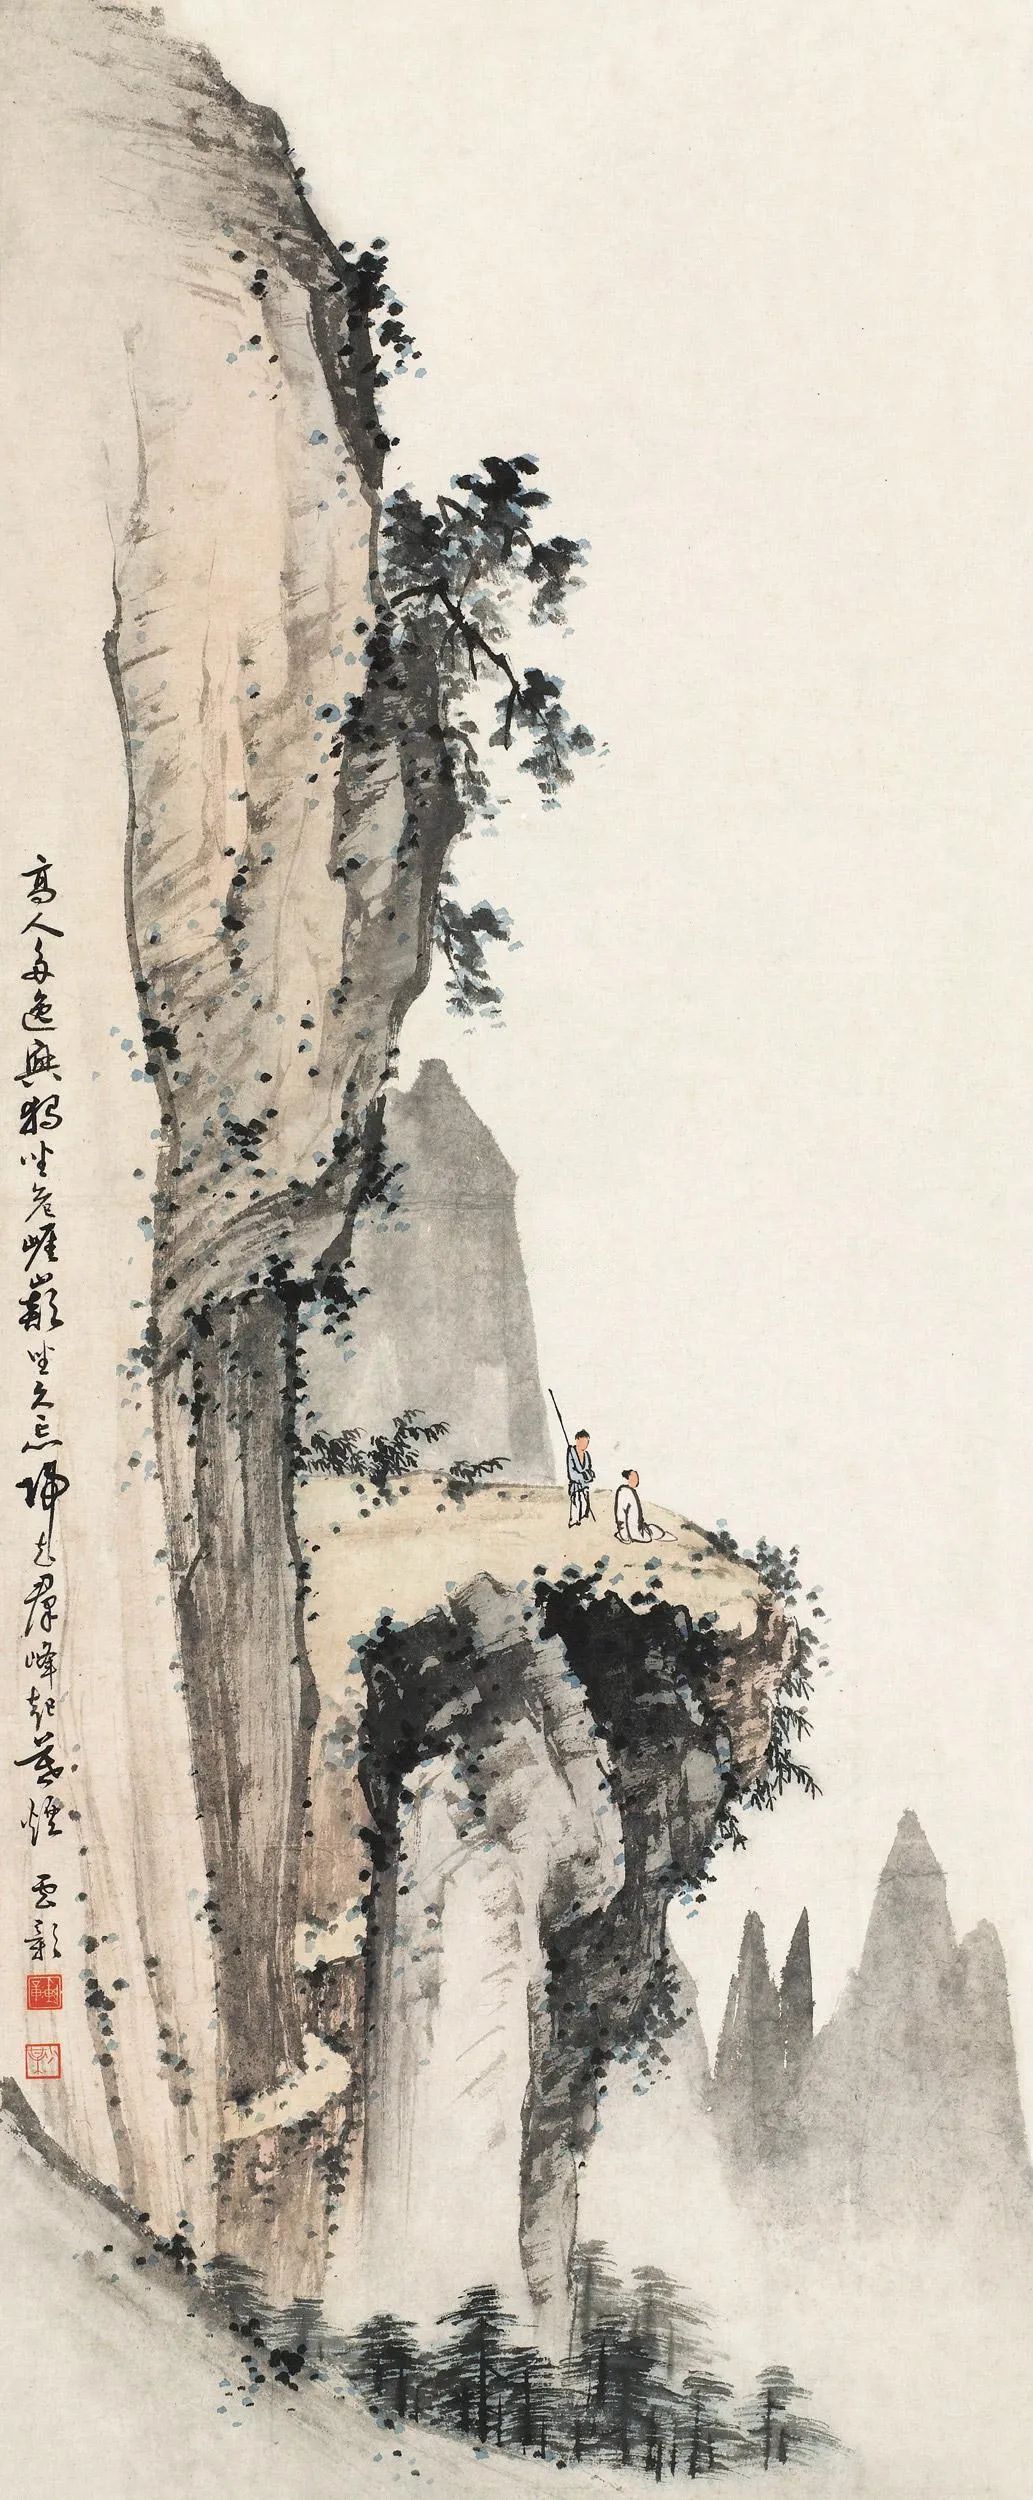 高人多逸興獨坐危崖巔坐久忘歸去群峰起暮煙 雲彰